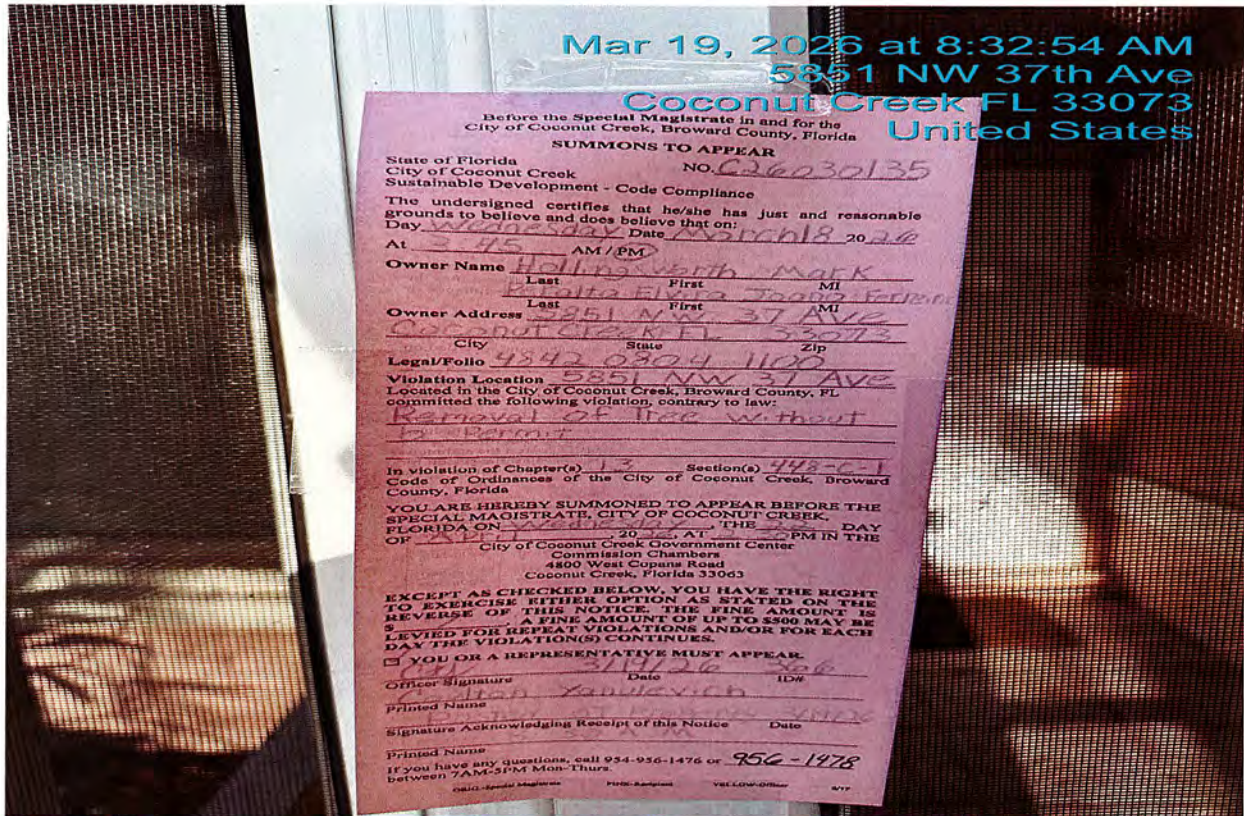 Mar 19, 2026 at 8:32:54 AM
5851 NW 37th Ave
Coconut Creek FL 33073
United States
Before the Special Magistrate in and for the
City of Coconut Creek, Broward County, Florida
SUMMONS TO APPEAR
State of Florida NO. C26030135
City of Coconut Creek
Sustainable Development - Code Compliance
The undersigned certifies that he/she has just and reasonable
grounds to believe and does believe that on:
Day Wednesday Date March 18 20 26
At 2:45 AM / PM
Owner Name Hollingsworth Mark
Last First MI
Peralta Elvira Joana
Last First MI
Owner Address 5851 NW 37 Ave
Coconut Creek FL 33073
City State Zip
Legal/Folio 4842 0804 1100
Violation Location 5851 NW 37 Ave
Located in the City of Coconut Creek, Broward County, FL
committed the following violation, contrary to law:
Removal of Tree without
Permit
In violation of Chapter(s) 13 Section(s) 448-C-1
Code of Ordinances of the City of Coconut Creek, Broward
County, Florida
YOU ARE HEREBY SUMMONED TO APPEAR BEFORE THE
SPECIAL MAGISTRATE, CITY OF COCONUT CREEK,
FLORIDA ON Wednesday, THE 22 DAY
OF April, 2026, AT PM IN THE
City of Coconut Creek Government Center
Commission Chambers
4800 West Copans Road
Coconut Creek, Florida 33063
EXCEPT AS CHECKED BELOW, YOU HAVE THE RIGHT
TO EXERCISE EITHER OPTION AS STATED ON THE
REVERSE OF THIS NOTICE. THE FINE AMOUNT IS
$ . A FINE AMOUNT OF UP TO $500 MAY BE
LEVIED FOR REPEAT VIOLATIONS AND/OR FOR EACH
DAY THE VIOLATION(S) CONTINUES.
YOU OR A REPRESENTATIVE MUST APPEAR.
3/19/26 366
Officer Signature Date ID#
Yanulevich
Printed Name
Signature Acknowledging Receipt of this Notice Date
Printed Name
If you have any questions, call 954-956-1476 or 956-1478
between 7AM-5PM Mon-Thurs.
ORIG.-Special Magistrate PINK-Recipient YELLOW-Officer 8/17